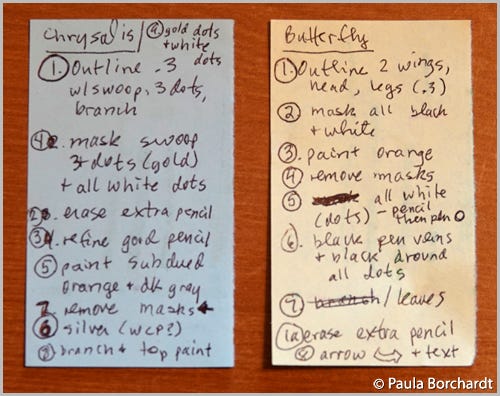 Chrysalis/
⑨ gold dots
+ white
dots
① Outline .3
w/swoop, 3 dots,
branch
④ 2. mask swoop
3+ dots (gold)
+ all white dots
② 3. erase extra pencil
③ 4. refine good pencil
⑤ paint subdued
orange + dk gray
7. remove masks
⑥ silver (WCP?)
⑧ branch + top paint
Butterfly
① Outline 2 wings,
head, legs (.3)
② mask all black
+ white
③ paint orange
④ remove masks
⑤ all white
(dots) - pencil
then pen
⑥ black pen veins
+ black around
all dots
⑦ branch / leaves
(1a) erase extra pencil
⑧ arrow ⇨ + text
© Paula Borchardt